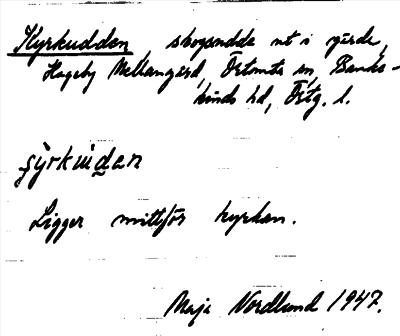 Kyrkudden, skogsudde ut i gärde,
Hageby Mellangård, Örtomta sn, Banke-
kinds hd, Östg. l.
Ligger mittför kyrkan.
Maja Nordlund 1947.